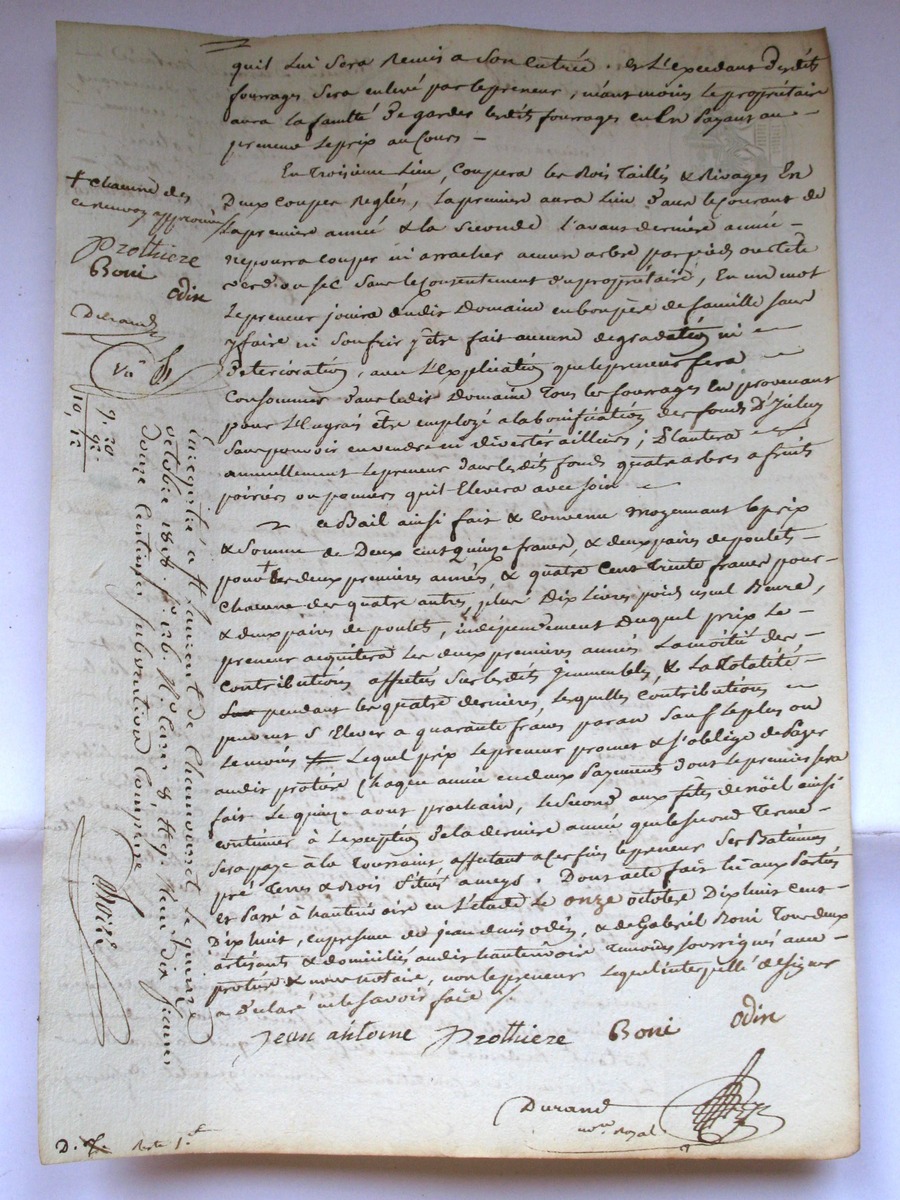 qu'il lui sera remis a son entrée. et l'excedant desdits
fourrages sera enlevé par le preneur, néant moins le propriétaire
aura la faculté de garder lesdits fourrages en en payant au
preneur le prix au cours —
En troisième lieu, coupera les Bois taillés & Rivages En
Deux coupes Reglés, la premiere aura lieu dans le courant de
la premiere année & la seconde l'avant derniere année —
ne pourra couper ni arracher aucun arbre par pied ou tête
verd ou sec sans le consentement du propriétaire, En un mot
Le preneur jouira dudit Domaine en bon père de famille sans
y faire ni soufrir y être fait aucune degradation ni —
deterioration, avec l'Explication que le preneur fera —
Consommer dans ledit Domaine tous les fourrages En provenant
pour l'Engrais être employé a la bonification des fonds
sans pouvoir en vendre ni divertir ailleurs; Plantera —
annuellement le preneur dans lesdits fonds quatre arbres a fruits
poiriers ou pomiers qu'il Elevera avec soin —
Ce Bail ainsi fait & convenu moyennant le prix
& Somme de Deux cent quinze francs, & deux paires de poulets —
pour + des deux premieres années, & quatre cent trente francs pour —
chacune des quatre autres, plus Dix Livres poids usuel Beure,
& deux paires de poulets, indépendemment Duquel prix Le —
preneur acquitera les deux premieres années La moitié des —
contributions affectés sur lesdits Immeubles, & La Totalité —
pendant les quatre dernieres, lesquelles contributions —
peuvent S'Elever a quarante francs par an sauf le plus ou
le moins Lequel prix Le preneur promet & s'oblige de Payer
audit protière chaque année en deux Payements dont le premier sera
fait Le quinze aout prochain, le second aux fêtes de noël ainsi
continuer à l'exception de la derniere année que le second Terme
sera payé à la Toussaint affectant a ces fins le preneur Ses Batiments
pré Terres & Bois situés ameys. Dont acte fait lû aux Partés
et Passé à hauterivoire en l'étude Le onze octobre Dix huit cent —
Dix huit, en presence de jean denis odin, & de Gabriel Boni Tous deux
artisants & domiciliés audit hauterivoire Temoins soussignés avec
protière & nous notaire, non le preneur Lequel interpellé de signer
a déclaré ne le savoir faire /
Jean antoine Prothiere Boni odin
Durand
no.re Royal
+ chacune des
ce renvoy approuvé
Prothiere
Boni
odin
Durand
Vu
9. 20
92
10, 12
Enregistré a St Laurent de Chamousset le quinze
octobre 1818. fo 126. Ro. Case 8 Reçu neuf dix francs
douze centimes subvention comprise
D. Reste 1.f